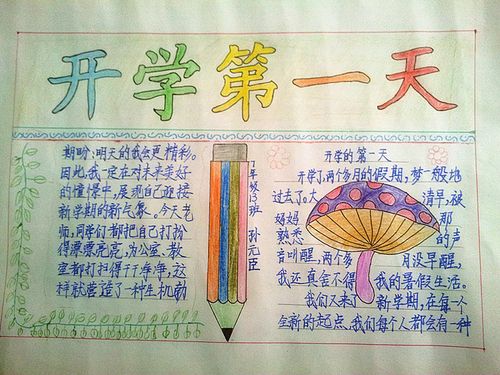 开学第一天
期盼、明天的我会更精彩。
因此,我一定在对未来美好
的憧憬中,展现自己迎接
新学期的新气象。今天老
师,同学们都把自己打扮
得漂漂亮亮,为公室、教
室都打扫得干干净净,这
样就营造了一种生机勃
7年级13班 孙元臣
开学的第一天
开学了,两个多月的假期,梦一般地
过去了。大清早,被
妈妈那
熟悉的声
音叫醒,两个多月没早醒,
我还真舍不得我的暑假生活。
我们又来了新学期,在每一个
全新的起点,我们每个人都会有一种